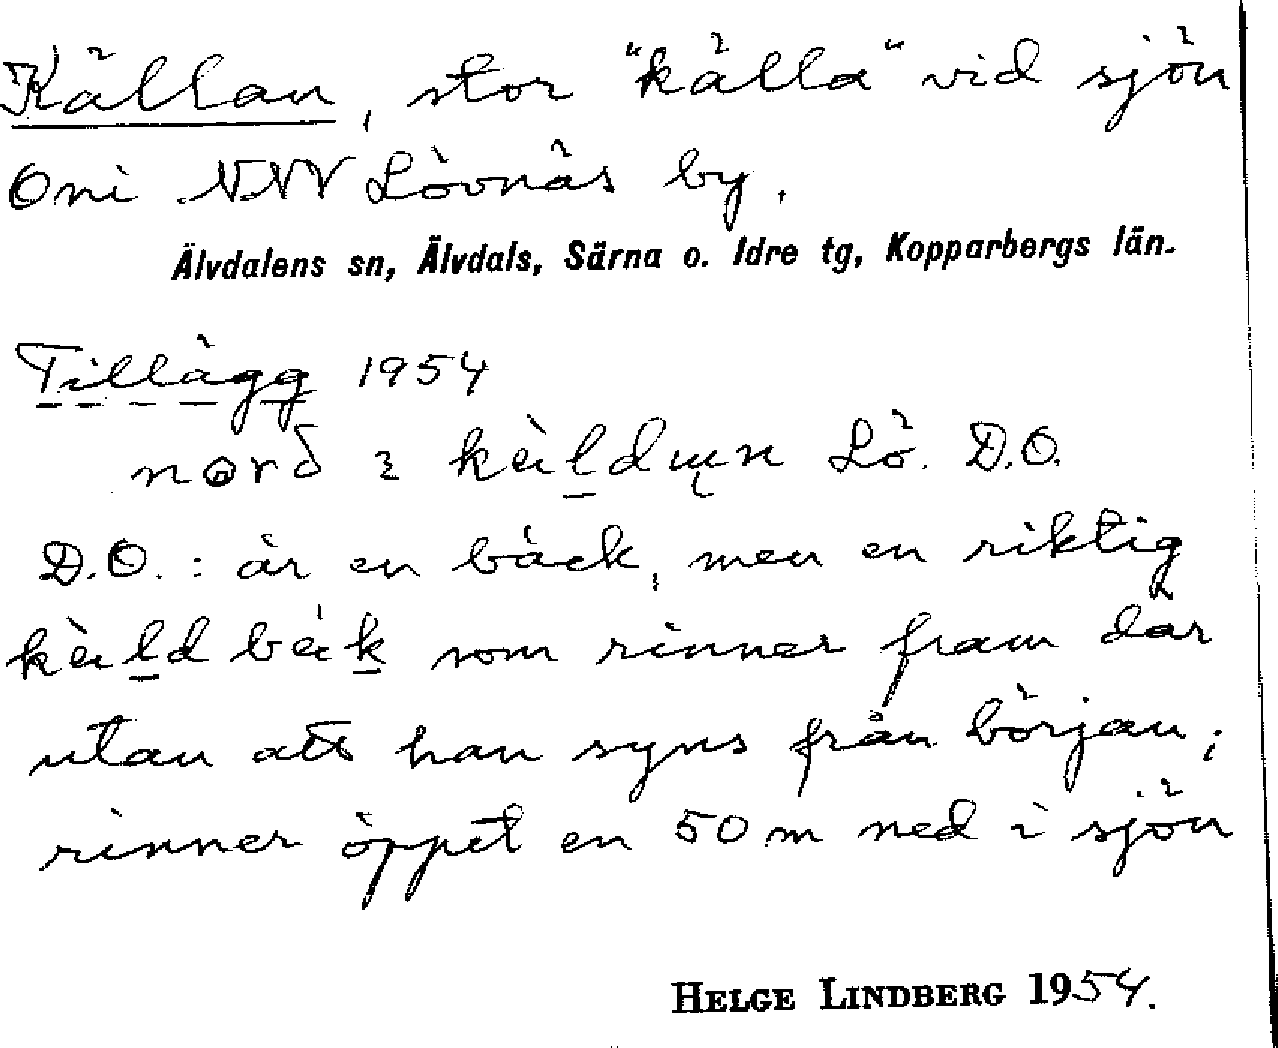 Källan, stor "källa" vid sjön
Oni NNV Lövnäs by.
Älvdalens sn, Älvdals, Särna o. Idre tg, Kopparbergs län.
Tillägg 1954
Lö. D.O.
D.O.: är en bäck, men en riktig
som rinner fram där
utan att han syns från början;
rinner öppet en 50 m ned i sjön
HELGE LINDBERG 1954.